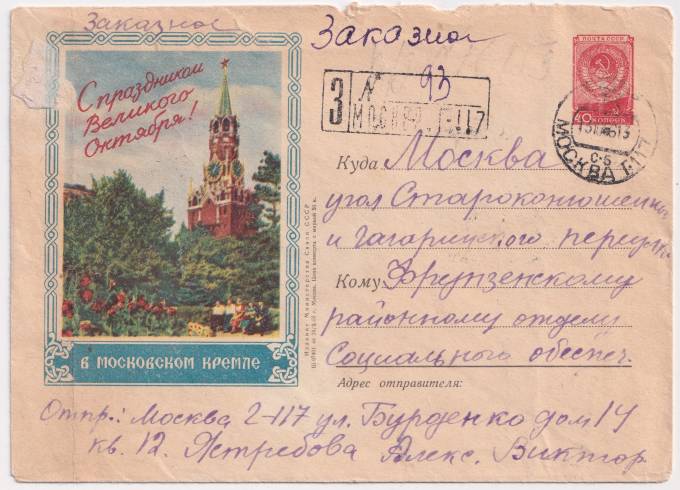 Заказное
Заказное
С праздником
Великого
Октября!
В МОСКОВСКОМ КРЕМЛЕ
ПОЧТА СССР
40 КОПЕЕК
З
№ 93
МОСКВА Г-117
МОСКВА Г-117
С-Б
Куда Москва
угол Староконюшенн
и Гагаринского переул
Кому Фрунзенскому
районному отделу
Социального обеспеч.
Издание Министерства Связи СССР
Адрес отправителя:
Отпр.: Москва Г-117 ул. Бурденко дом 14
кв. 12. Ястребова Алекс. Виктор